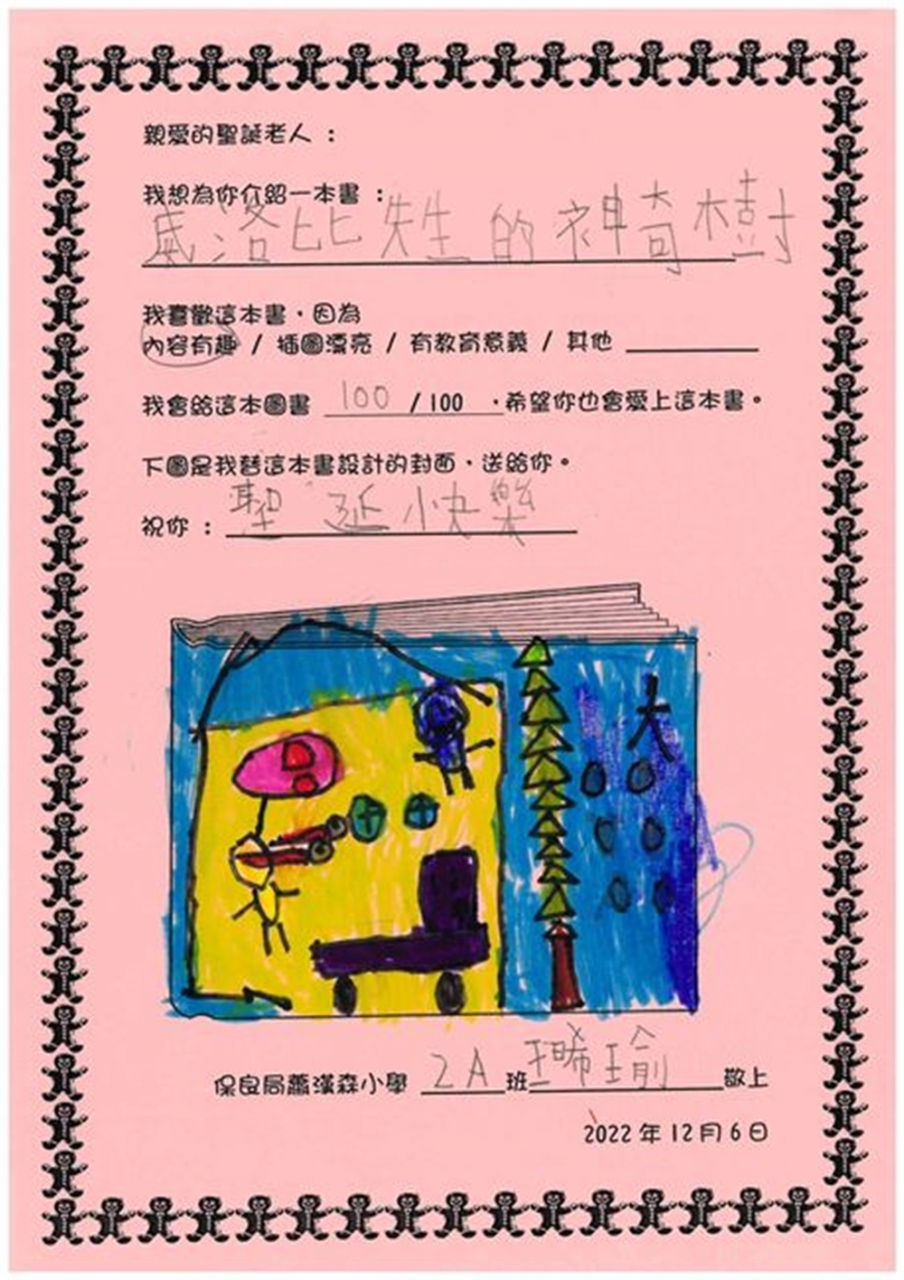 親愛的聖誕老人：
我想為你介紹一本書：
威洛比先生的神奇樹
我喜歡這本書，因為
內容有趣 / 插圖漂亮 / 有教育意義 / 其他
我會給這本圖書 100 / 100 ，希望你也會愛上這本書。
下圖是我替這本書設計的封面，送給你。
祝你：聖延快樂
大
保良局蕭漢森小學 2A 班王晞瑜敬上
2022年12月6日